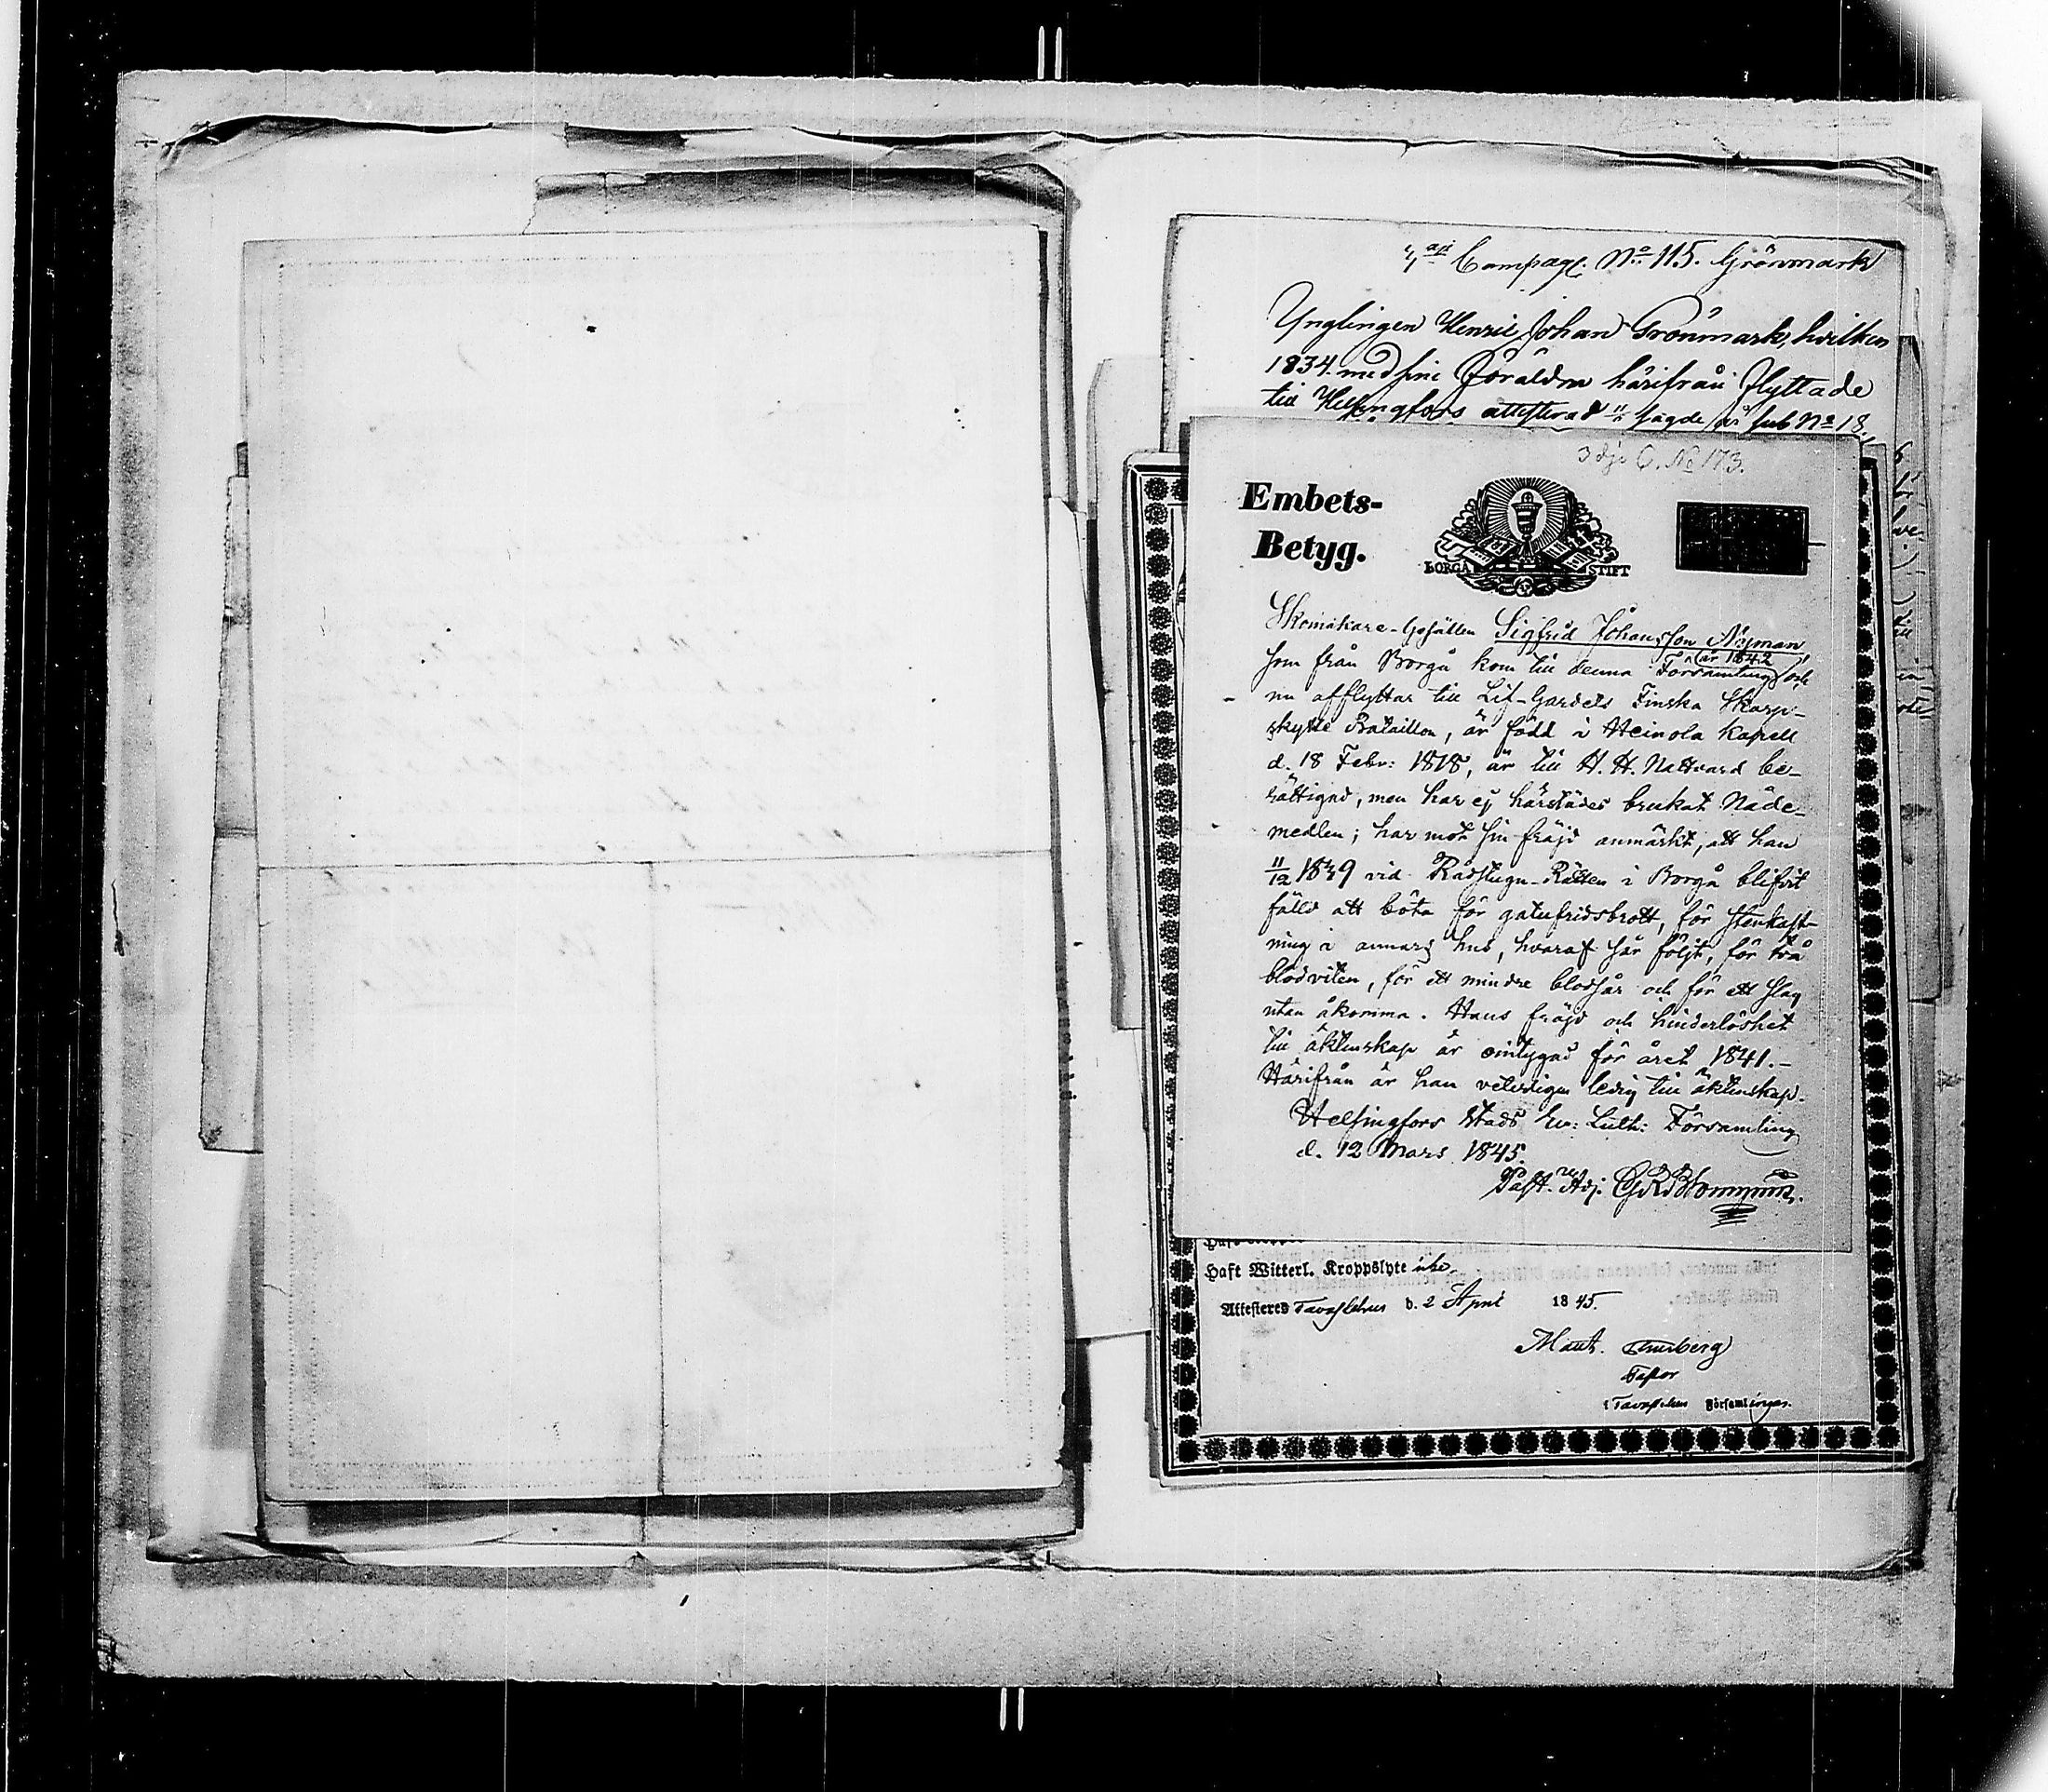 Compag. No 115. Grönmark
Ynglingen Henric Johan Grönmark, hvilken
1834. med sine Föräldrar härifrån flyttade
till Helsingfors attesterad sagde år sub No 18
3dje C. No 173.
Embets-
Betyg.
BORGÅ STIFT
Skomakare-Gesällen Sigfrid Johansson Nyman,
som från Borgå kom till denna Församling år 1842 och
nu afflyttar till Lif-Gardets Finska Skarp-
skytte Bataillon, är född i Heinola Kapell
d. 18 Febr: 1818, är till H. H. Nattvard be-
rättigad, men har ej härstädes brukat Nåde-
medlen; har mot sin fräjd anmärkt, att han
11/12 1839 vid Rådstugu-Rätten i Borgå blifvit
fälld att böta för gatufridsbrott, för stenkast-
ning i annars hus, hvaraf sår följt, för två
blodviten, för ett mindre blodsår och för ett slag
utan åkomma. Hans fräjd och hinderlöshet
till äktenskap är omtygad för året 1841.-
Härifrån är han veterligen ledig till äktenskap.
Helsingfors Stads Ev: Luth: Församling
d. 12 Mars 1845.
Past. Adj.
Haft Witterl. Kroppslyte icke.
Attesteres Tavastehus d. 2 April 1845.
Pastor
i Tavastehus Församlingar.